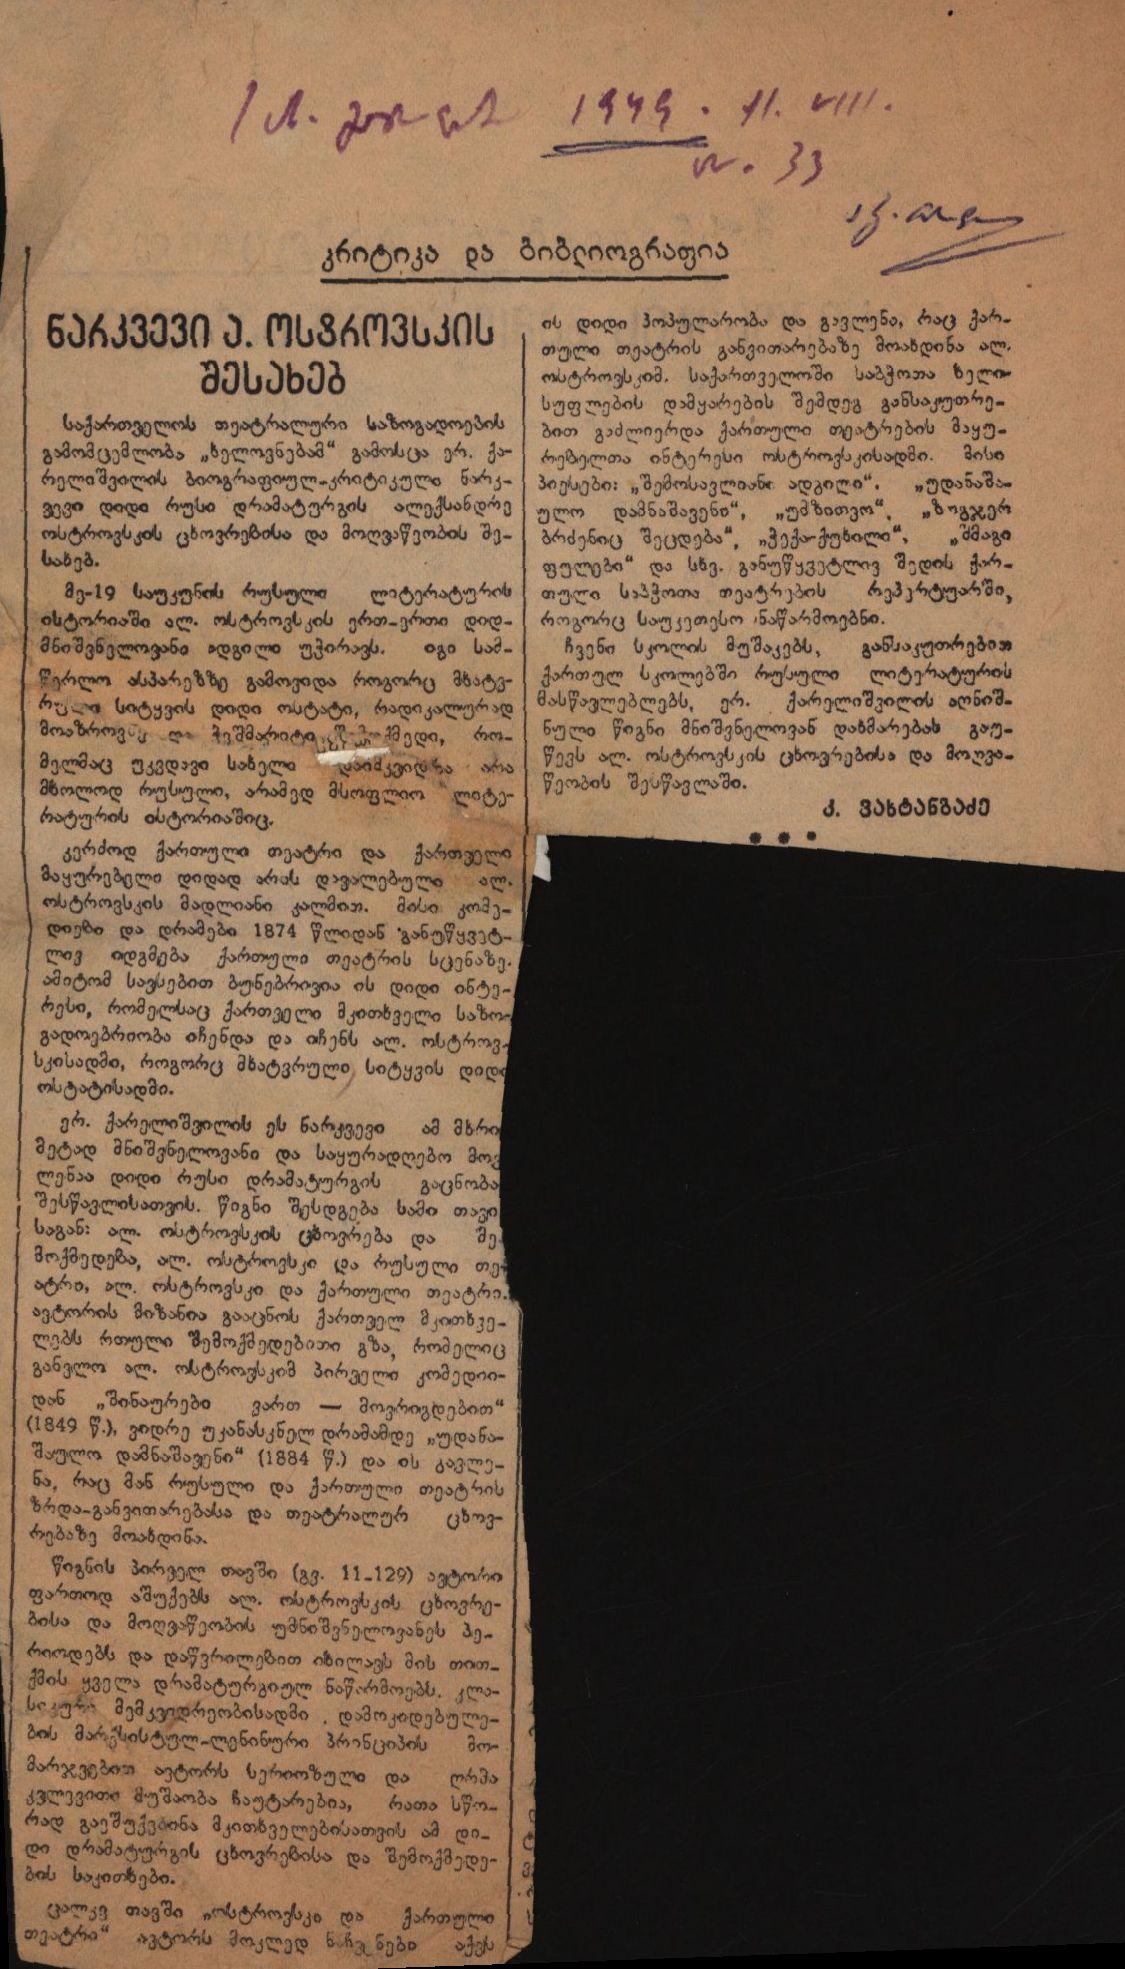 1949. 11. VIII.
N. 33
კრიტიკა და ბიბლიოგრაფია
ნარკვევი ა. ოსტროვსკის
შესახებ
საქართველოს თეატრალური საზოგადოების
გამომცემლობა „ხელოვნებამ“ გამოსცა ერ. ქა-
რელიშვილის ბიოგრაფიულ-კრიტიკული ნარკ-
ვევი დიდი რუსი დრამატურგის ალექსანდრე
ოსტროვსკის ცხოვრებისა და მოღვაწეობის შე-
სახებ.
მე-19 საუკუნის რუსული ლიტერატურის
ისტორიაში ალ. ოსტროვსკის ერთ-ერთი დიდ-
მნიშვნელოვანი ადგილი უჭირავს. იგი სამ-
წერლო ასპარეზზე გამოვიდა როგორც მხატვ-
რული სიტყვის დიდი ოსტატი, რადიკალურად
მოაზროვნე და ჭეშმარიტი შემოქმედი, რო-
მელმაც უკვდავი სახელი დაიმკვიდრა არა
მხოლოდ რუსული, არამედ მსოფლიო ლიტე-
რატურის ისტორიაშიც.
კერძოდ ქართული თეატრი და ქართველი
მაყურებელი დიდად არის დავალებული ალ.
ოსტროვსკის მადლიანი კალმით. მისი კომე-
დიები და დრამები 1874 წლიდან განუწყვეტ-
ლივ იდგმება ქართული თეატრის სცენაზე.
ამიტომ სავსებით ბუნებრივია ის დიდი ინტე-
რესი, რომელსაც ქართველი მკითხველი საზო-
გადოებრიობა იჩენდა და იჩენს ალ. ოსტროვ-
სკისადმი, როგორც მხატვრული სიტყვის დიდი
ოსტატისადმი.
ერ. ქარელიშვილის ეს ნარკვევი ამ მხრი
მეტად მნიშვნელოვანი და საყურადღებო მოვ
ლენაა დიდი რუსი დრამატურგის გაცნობა
შესწავლისათვის. წიგნი შესდგება სამი თავი
საგან: ალ. ოსტროვსკის ცხოვრება და შე
მოქმედება, ალ. ოსტროვსკი და რუსული თე
ატრი, ალ. ოსტროვსკი და ქართული თეატრი.
ავტორის მიზანია გააცნოს ქართველ მკითხვე-
ლებს რთული შემოქმედებითი გზა, რომელიც
განვლო ალ. ოსტროვსკიმ პირველი კომედიი-
დან „შინაურები ვართ — მოვრიგდებით“
(1849 წ.), ვიდრე უკანასკნელ დრამამდე „უდანა-
შაულო დამნაშავენი“ (1884 წ.) და ის გავლე-
ნა, რაც მან რუსული და ქართული თეატრის
ზრდა-განვითარებასა და თეატრალურ ცხოვ-
რებაზე მოახდინა.
წიგნის პირველ თავში (გვ. 11-129) ავტორი
ფართოდ აშუქებს ალ. ოსტროვსკის ცხოვრე-
ბისა და მოღვაწეობის უმნიშვნელოვანეს პე-
რიოდებს და დაწვრილებით იხილავს მის თით-
ქმის ყველა დრამატურგიულ ნაწარმოებს. კლა-
სიკური მემკვიდრეობისადმი დამოკიდებულე-
ბის მარქსისტულ-ლენინური პრინციპის მო-
მარჯვებით ავტორს სერიოზული და ღრმა
კვლევითი მუშაობა ჩაუტარებია, რათა სწო-
რად გაეშუქებინა მკითხველებისათვის ამ დი-
დი დრამატურგის ცხოვრებისა და შემოქმედე-
ბის საკითხები.
ცალკე თავში „ოსტროვსკი და ქართული
თეატრი“ ავტორს მოკლედ ნაჩვენები აქვს
ის დიდი პოპულარობა და გავლენა, რაც ქარ-
თული თეატრის განვითარებაზე მოახდინა ალ.
ოსტროვსკიმ. საქართველოში საბჭოთა ხელი-
სუფლების დამყარების შემდეგ განსაკუთრე-
ბით გაძლიერდა ქართული თეატრების მაყუ-
რებელთა ინტერესი ოსტროვსკისადმი. მისი
პიესები: „შემოსავლიანი ადგილი“, „უდანაშა-
ულო დამნაშავენი“, „უმზითვო“, „ზოგჯერ
ბრძენიც შეცდება“, „ჭექა-ქუხილი“, „შმაგი
ფულები“ და სხვ. განუწყვეტლივ შედის ქარ-
თული საბჭოთა თეატრების რეპერტუარში,
როგორც საუკეთესო ნაწარმოებნი.
ჩვენი სკოლის მუშაკებს, განსაკუთრებით
ქართულ სკოლებში რუსული ლიტერატურის
მასწავლებლებს, ერ. ქარელიშვილის აღნიშ-
ნული წიგნი მნიშვნელოვან დახმარებას გაუ-
წევს ალ. ოსტროვსკის ცხოვრებისა და მოღვა-
წეობის შესწავლაში.
კ. ვახტანგაძე